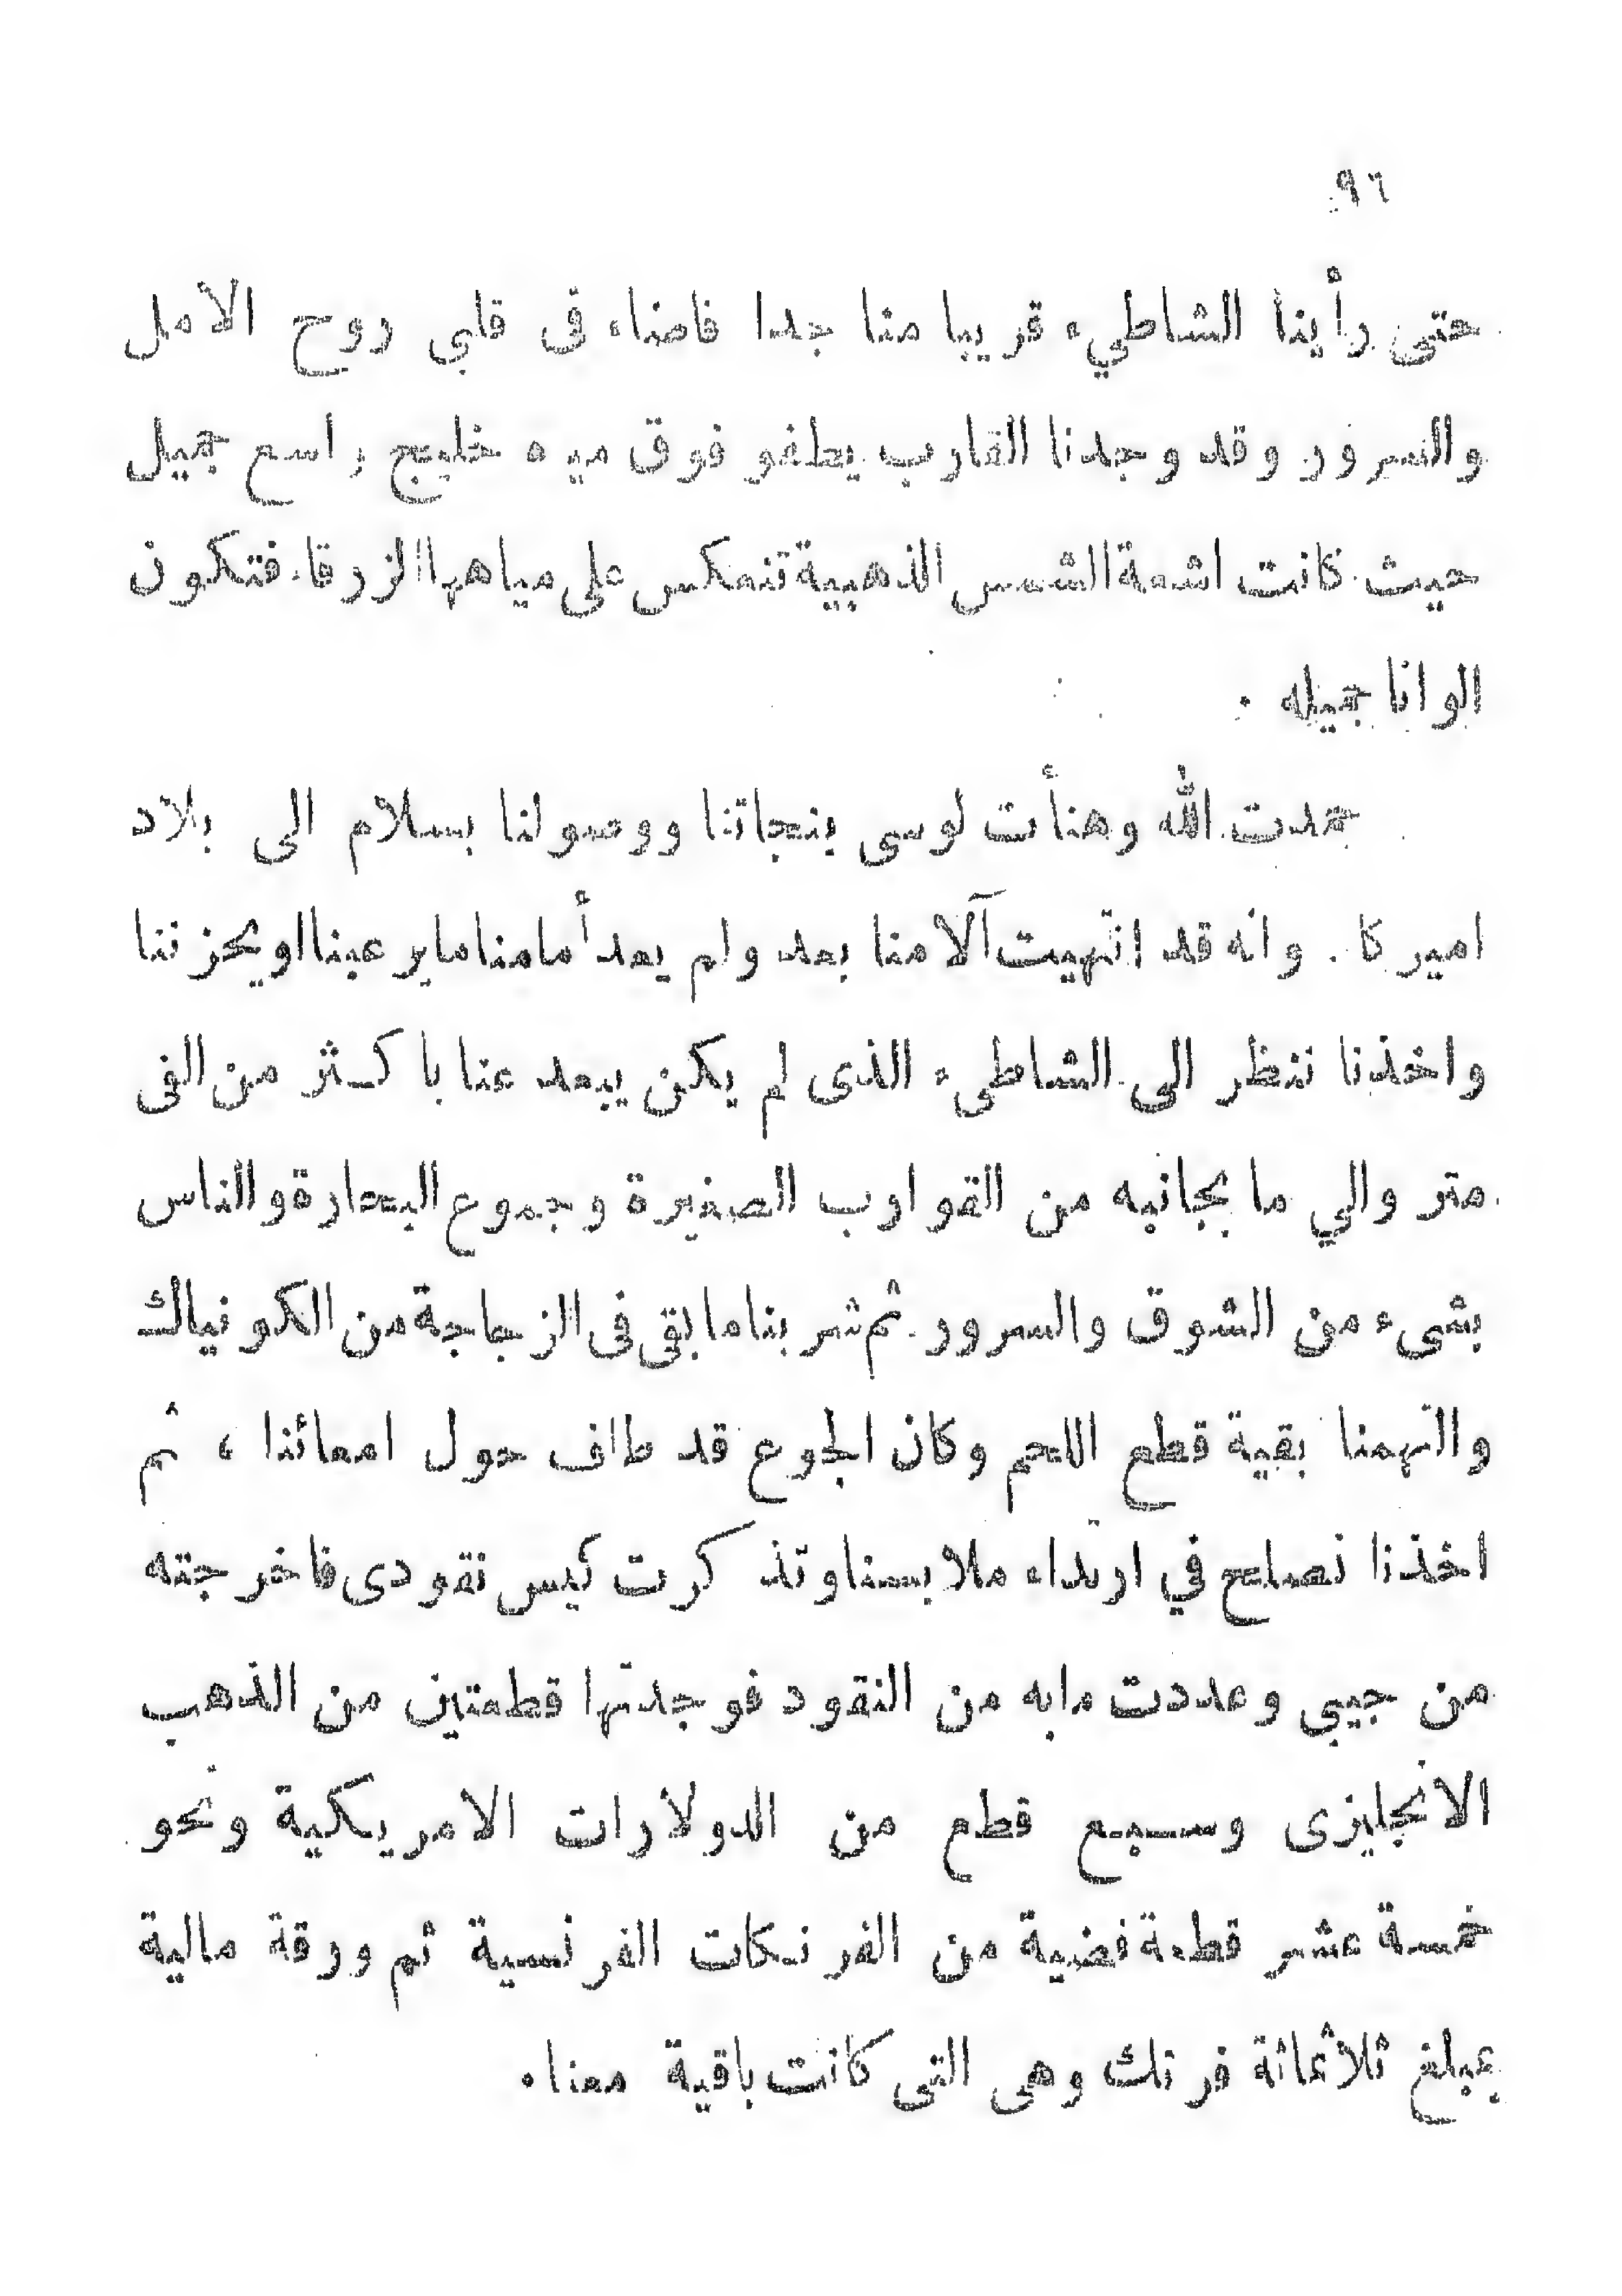 ٩٦
حتى رأينا الشاطيء قريبا منا جدا فاضاء فى قلبي روح الامل
والسرور وقد وجدنا القارب يطفو فوق مياه خليج واسع جميل
حيث كانت اشعة الشمس الذهبية تنعكس على مياهها الزرقاء فتكون
الوانا جميله .
حمدت الله وهنأت لوسى بنجاتنا ووصولنا بسلام الى بلاد
اميركا . وانه قد انتهيت آلامنا بعد ولم يعد أمامنا ما يرعبنا او يحزننا
واخذنا ننظر الى الشاطىء الذى لم يكن يبعد عنا باكثر من الفى
متر والي ما بجانبه من القوارب الصغيرة وجموع البحارة والناس
بشىء من الشوق والسرور . ثم شربنا ما بقى فى الزجاجة من الكونياك
والتهمنا بقية قطع اللحم وكان الجوع قد طاف حول امعائنا ، ثم
اخذنا نصلح في ارتداء ملابسنا وتذكرت كيس نقودى فاخرجته
من جيبي وعددت ما به من النقود فوجدتها قطعتين من الذهب
الانجليزى وسبع قطع من الدولارات الامريكية ونحو
خمسة عشر قطعة فضية من الفرنكات الفرنسية ثم ورقة مالية
بمبلغ ثلاثمائة فرنك وهى التى كانت باقية معنا .